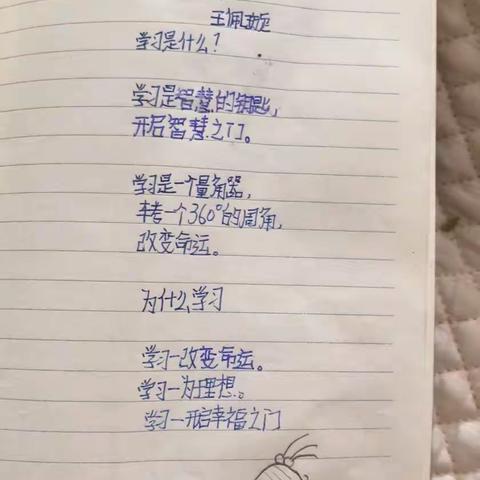 王佩
学习是什么?
学习是智慧的钥匙,
开启智慧之门。
学习是一个量角器,
转一个360°的周角,
改变命运。
为什么学习
学习—改变命运。
学习—为理想。
学习—开启幸福之门